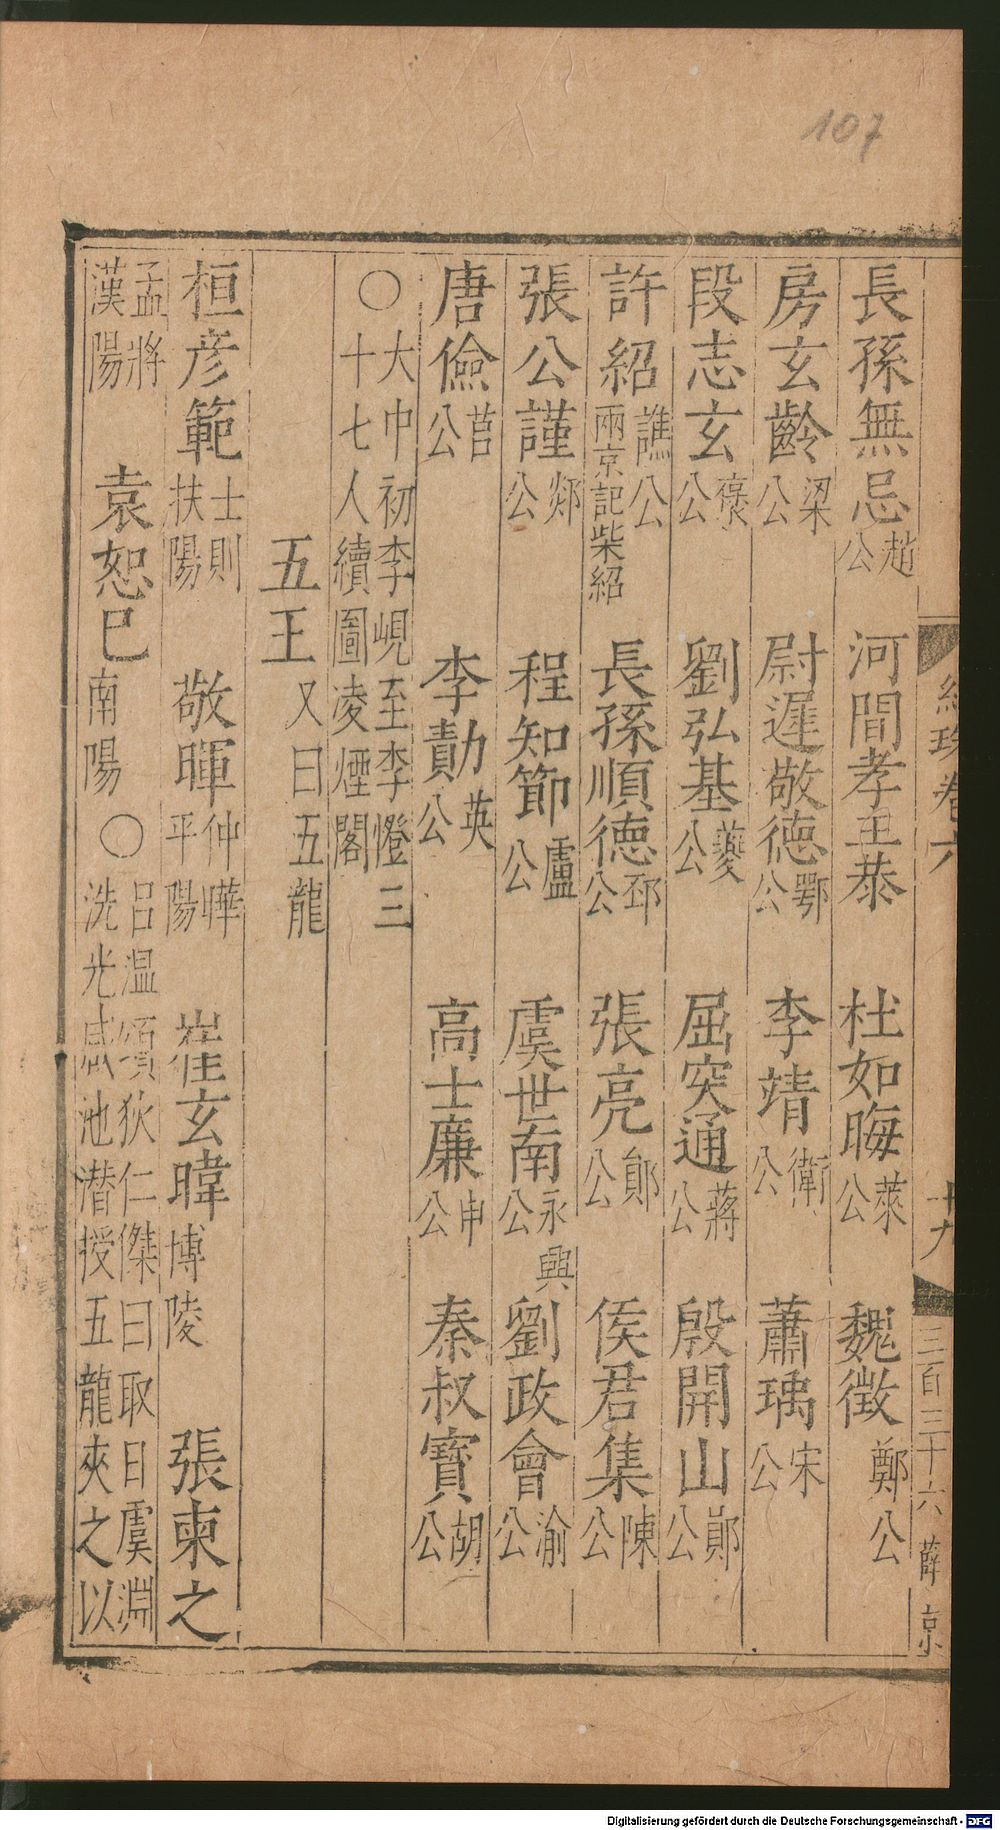 107
長孫無忌趙公 河間孝王恭 杜如晦萊公 魏徴鄭公
房玄齡梁公 尉遲敬德鄂公 李靖衛公 蕭瑀宋公
段志玄襃公 劉弘基夔公 屈突通蔣公 殷開山鄖公
許紹譙公兩京記柴紹 長孫順德邳公 張亮鄖公 侯君集陳公
張公謹郯公 程知節盧公 虞世南永興公 劉政會渝公
唐儉莒公 李勣英公 高士廉申公 秦叔寶胡公
○大中初李峴至李憕三十七人續圖凌煙閣
五王又曰五龍
桓彦範士則扶陽 敬暉仲曄平陽 崔玄暐博陵 張柬之
孟將漢陽 袁恕巳南陽 ○呂温頌狄仁傑曰取日虞淵洗光咸池潛授五龍夾之以
紺珠卷六 十九 三百三十六 薛京
Digitalisierung gefördert durch die Deutsche Forschungsgemeinschaft - DFG